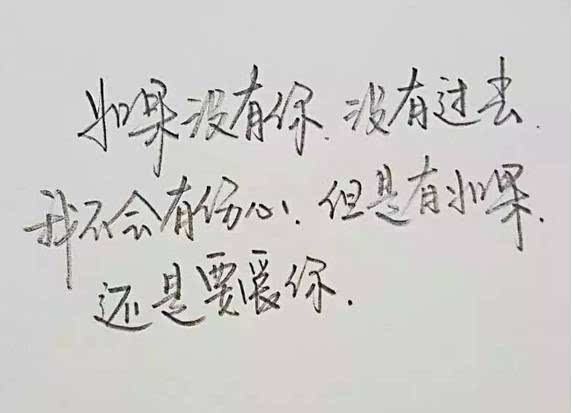 如果没有你.没有过去.
我不会有伤心.但是有如果.
还是要爱你.